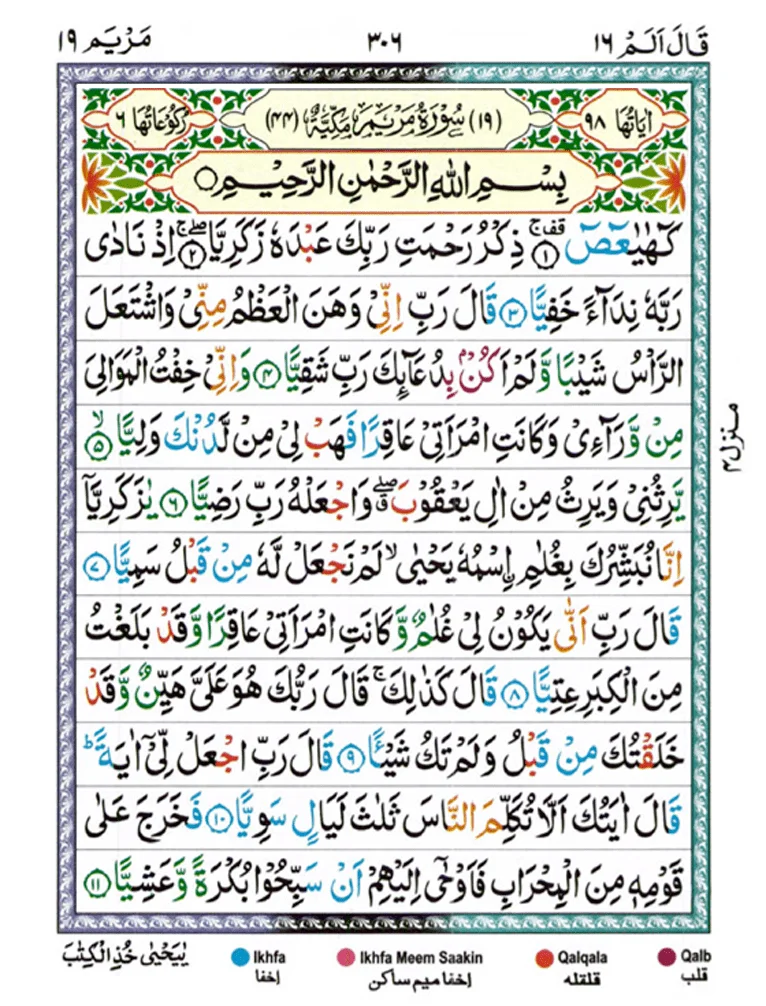 قَالَ اَلَمْ ١٦ ٣٠٦ مَرْيَم ١٩
اٰيَاتُهَا ٩٨ (١٩) سُوْرَةُ مَرْيَمَ مَكِّيَّةٌ (٤٤) رُكُوْعَاتُهَا ٦
بِسْمِ اللهِ الرَّحْمٰنِ الرَّحِيْمِ ○
كٓهٰيٰعٓصٓ ۚ ۣ ﴿١﴾ ذِكْرُ رَحْمَتِ رَبِّكَ عَبْدَهٗ زَكَرِيَّا ۖۚ ﴿٢﴾ اِذْ نَادٰى
رَبَّهٗ نِدَآءً خَفِيًّا ﴿٣﴾ قَالَ رَبِّ اِنِّيْ وَهَنَ الْعَظْمُ مِنِّيْ وَاشْتَعَلَ
الرَّاْسُ شَيْبًا وَّلَمْ اَكُنْۢ بِدُعَآئِكَ رَبِّ شَقِيًّا ﴿٤﴾ وَاِنِّيْ خِفْتُ الْمَوَالِيَ
مِنْ وَّرَآءِيْ وَكَانَتِ امْرَاَتِيْ عَاقِرًا فَهَبْ لِيْ مِنْ لَّدُنْكَ وَلِيًّا ۙ ﴿٥﴾
يَّرِثُنِيْ وَيَرِثُ مِنْ اٰلِ يَعْقُوْبَ ۖ ق وَاجْعَلْهُ رَبِّ رَضِيًّا ﴿٦﴾ يٰزَكَرِيَّآ
اِنَّا نُبَشِّرُكَ بِغُلٰمِ ۨاسْمُهٗ يَحْيٰى ۙ لَمْ نَجْعَلْ لَّهٗ مِنْ قَبْلُ سَمِيًّا ﴿٧﴾
قَالَ رَبِّ اَنّٰى يَكُوْنُ لِيْ غُلٰمٌ وَّكَانَتِ امْرَاَتِيْ عَاقِرًا وَّقَدْ بَلَغْتُ
مِنَ الْكِبَرِ عِتِيًّا ﴿٨﴾ قَالَ كَذٰلِكَ ۚ قَالَ رَبُّكَ هُوَ عَلَيَّ هَيِّنٌ وَّقَدْ
خَلَقْتُكَ مِنْ قَبْلُ وَلَمْ تَكُ شَيْـًٔا ﴿٩﴾ قَالَ رَبِّ اجْعَلْ لِّيْٓ اٰيَةً ؕ
قَالَ اٰيَتُكَ اَلَّا تُكَلِّمَ النَّاسَ ثَلٰثَ لَيَالٍ سَوِيًّا ﴿١٠﴾ فَخَرَجَ عَلٰى
قَوْمِهٖ مِنَ الْمِحْرَابِ فَاَوْحٰٓى اِلَيْهِمْ اَنْ سَبِّحُوْا بُكْرَةً وَّعَشِيًّا ﴿١١﴾
منزل ٤
يٰيَحْيٰى خُذِ الْكِتٰبَ
Ikhfa Ikhfa Meem Saakin Qalqala Qalb
إخفا إخفا ميم ساكن قلقله قلب